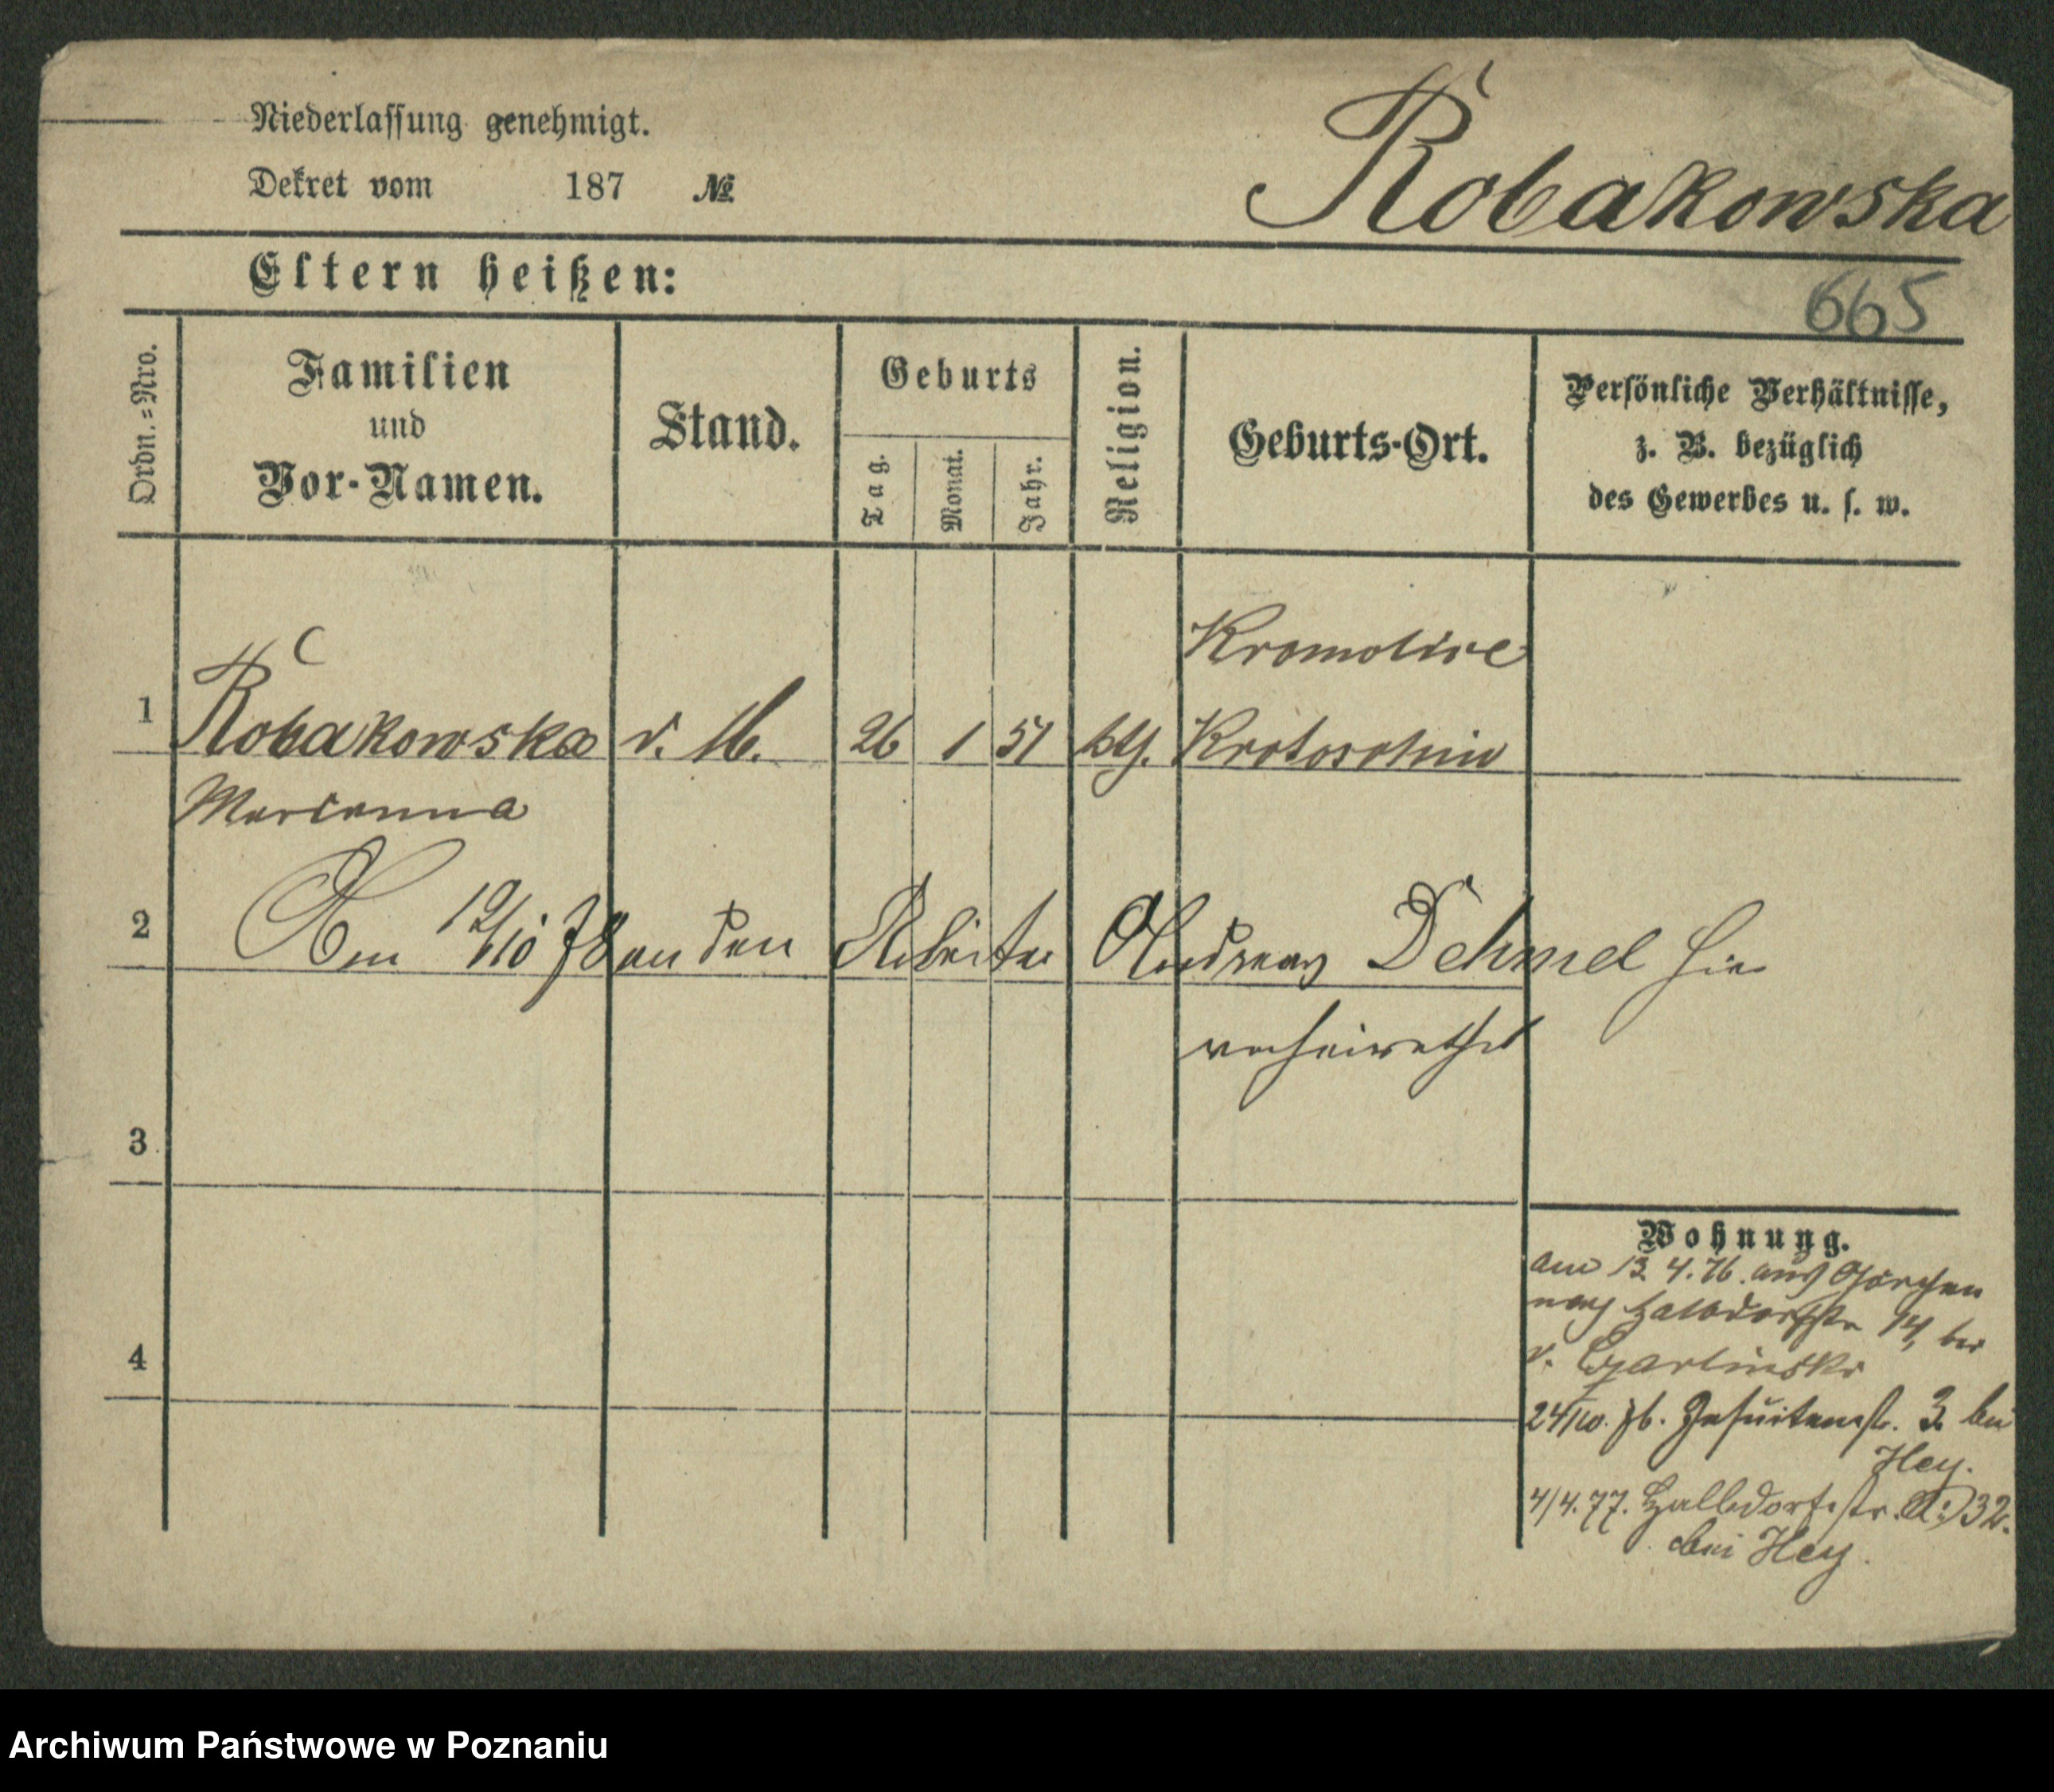 Niederlassung genehmigt.
Dekret vom 187 №
Robakowska
Eltern heißen:
665
Ordn.=Nro.
Familien
und
Vor-Namen.
Stand.
Geburts
Tag.
Monat.
Jahr.
Religion.
Geburts-Ort.
Persönliche Verhältnisse,
z. B. bezüglich
des Gewerbes u. s. w.
Kromolice
1 Robakowska 26 1 51 kth. Krotoschin
Marianna
2 Am 19/10 78 an den Arbeiter Andreas Dehmel hier
verheirathet
3
4
Wohnung.
am 13. 4. 76. aus
nach Halbdorfstr 14, bei
v.
24/10. 76. Jesuitenstr. 3. bei
Hey.
4/4. 77. Halbdorfstr. 32.
bei Hey.
Archiwum Państwowe w Poznaniu